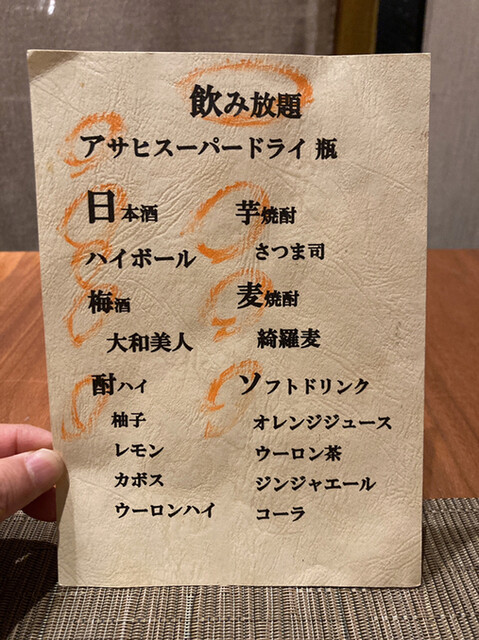 飲み放題
アサヒスーパードライ 瓶
日本酒
ハイボール
梅酒
大和美人
酎ハイ
柚子
レモン
カボス
ウーロンハイ
芋焼酎
さつま司
麦焼酎
綺羅麦
ソフトドリンク
オレンジジュース
ウーロン茶
ジンジャエール
コーラ